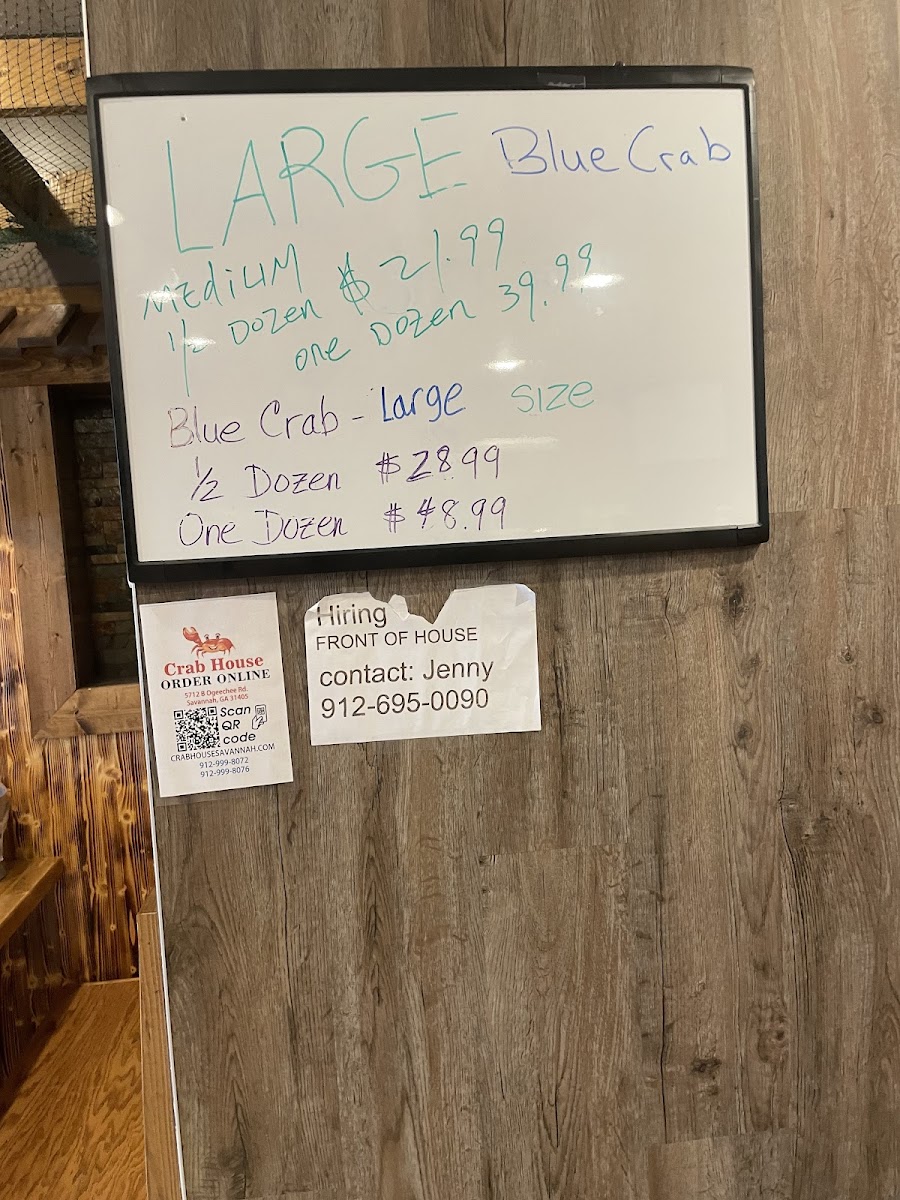 LARGE Blue Crab
MEDIUM
1/2 DOZEN $ 21.99
one DOZEN 39.99
Blue Crab - Large SIZE
1/2 Dozen $28.99
One Dozen $48.99
Crab House
ORDER ONLINE
5712 B Ogeechee Rd.
Savannah, GA 31405
Scan
QR
code
CRABHOUSESAVANNAH.COM
912-999-8072
912-999-8076
Hiring
FRONT OF HOUSE
contact: Jenny
912-695-0090